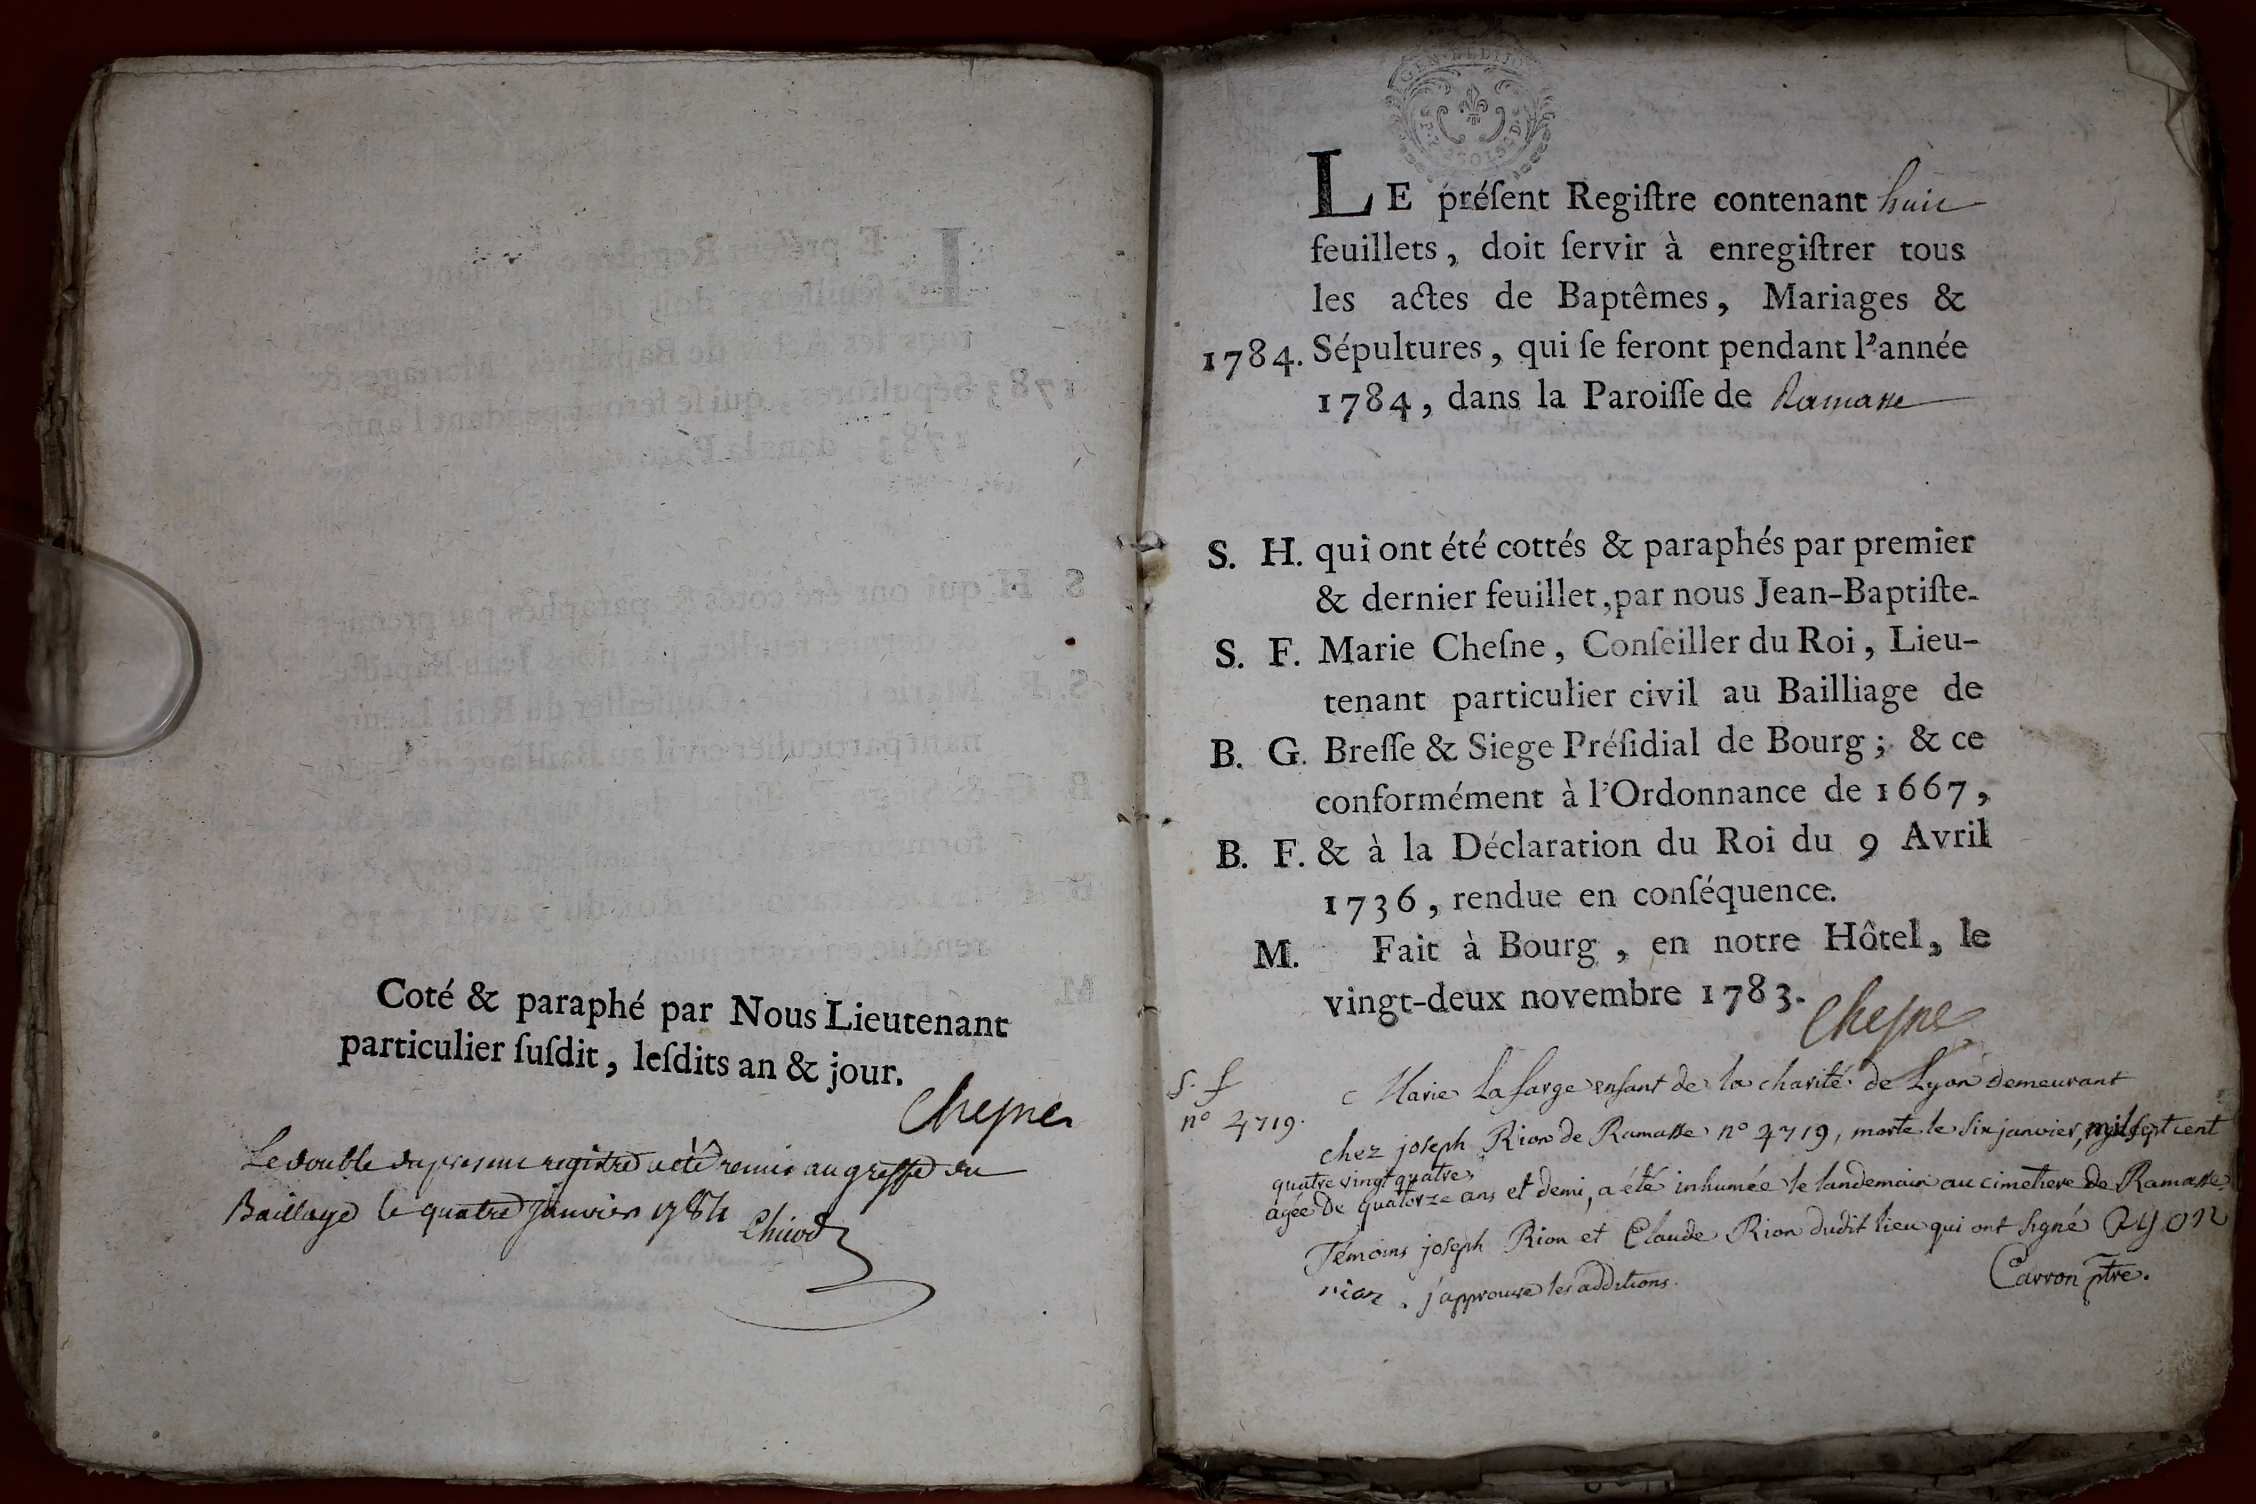 Coté & paraphé par Nous Lieutenant
particulier ſuſdit, leſdits an & jour.
Chesne
Le double du present registre a été remis au greffe du
Baillage le quatre janvier 1784
LE préſent Regiſtre contenant huit
feuillets, doit ſervir à enregiſtrer tous
les actes de Baptêmes, Mariages &
1784. Sépultures, qui ſe feront pendant l'année
1784, dans la Paroiſſe de Ramasse
S. H. qui ont été cottés & paraphés par premier
& dernier feuillet, par nous Jean-Baptiſte-
S. F. Marie Cheſne, Conſeiller du Roi, Lieu-
tenant particulier civil au Bailliage de
B. G. Breſſe & Siege Préſidial de Bourg; & ce
conformément à l'Ordonnance de 1667,
B. F. & à la Déclaration du Roi du 9 Avril
1736, rendue en conſéquence.
M. Fait à Bourg, en notre Hôtel, le
vingt-deux novembre 1783.
Chesne
S. f Marie Lafarge enfant de la charité de Lyon demeurant
n° 4719. chez joseph Rion de Ramasse n° 4719, morte le six janvier, mil sept cent
quatre vingt quatre,
agée de quatorze ans et demi, a été inhumée le landemain au cimetiere de Ramasse.
Témoins joseph Rion et Claude Rion dudit lieu qui ont signé Ryon
rion. j'approuve les additions. Carron ptre.